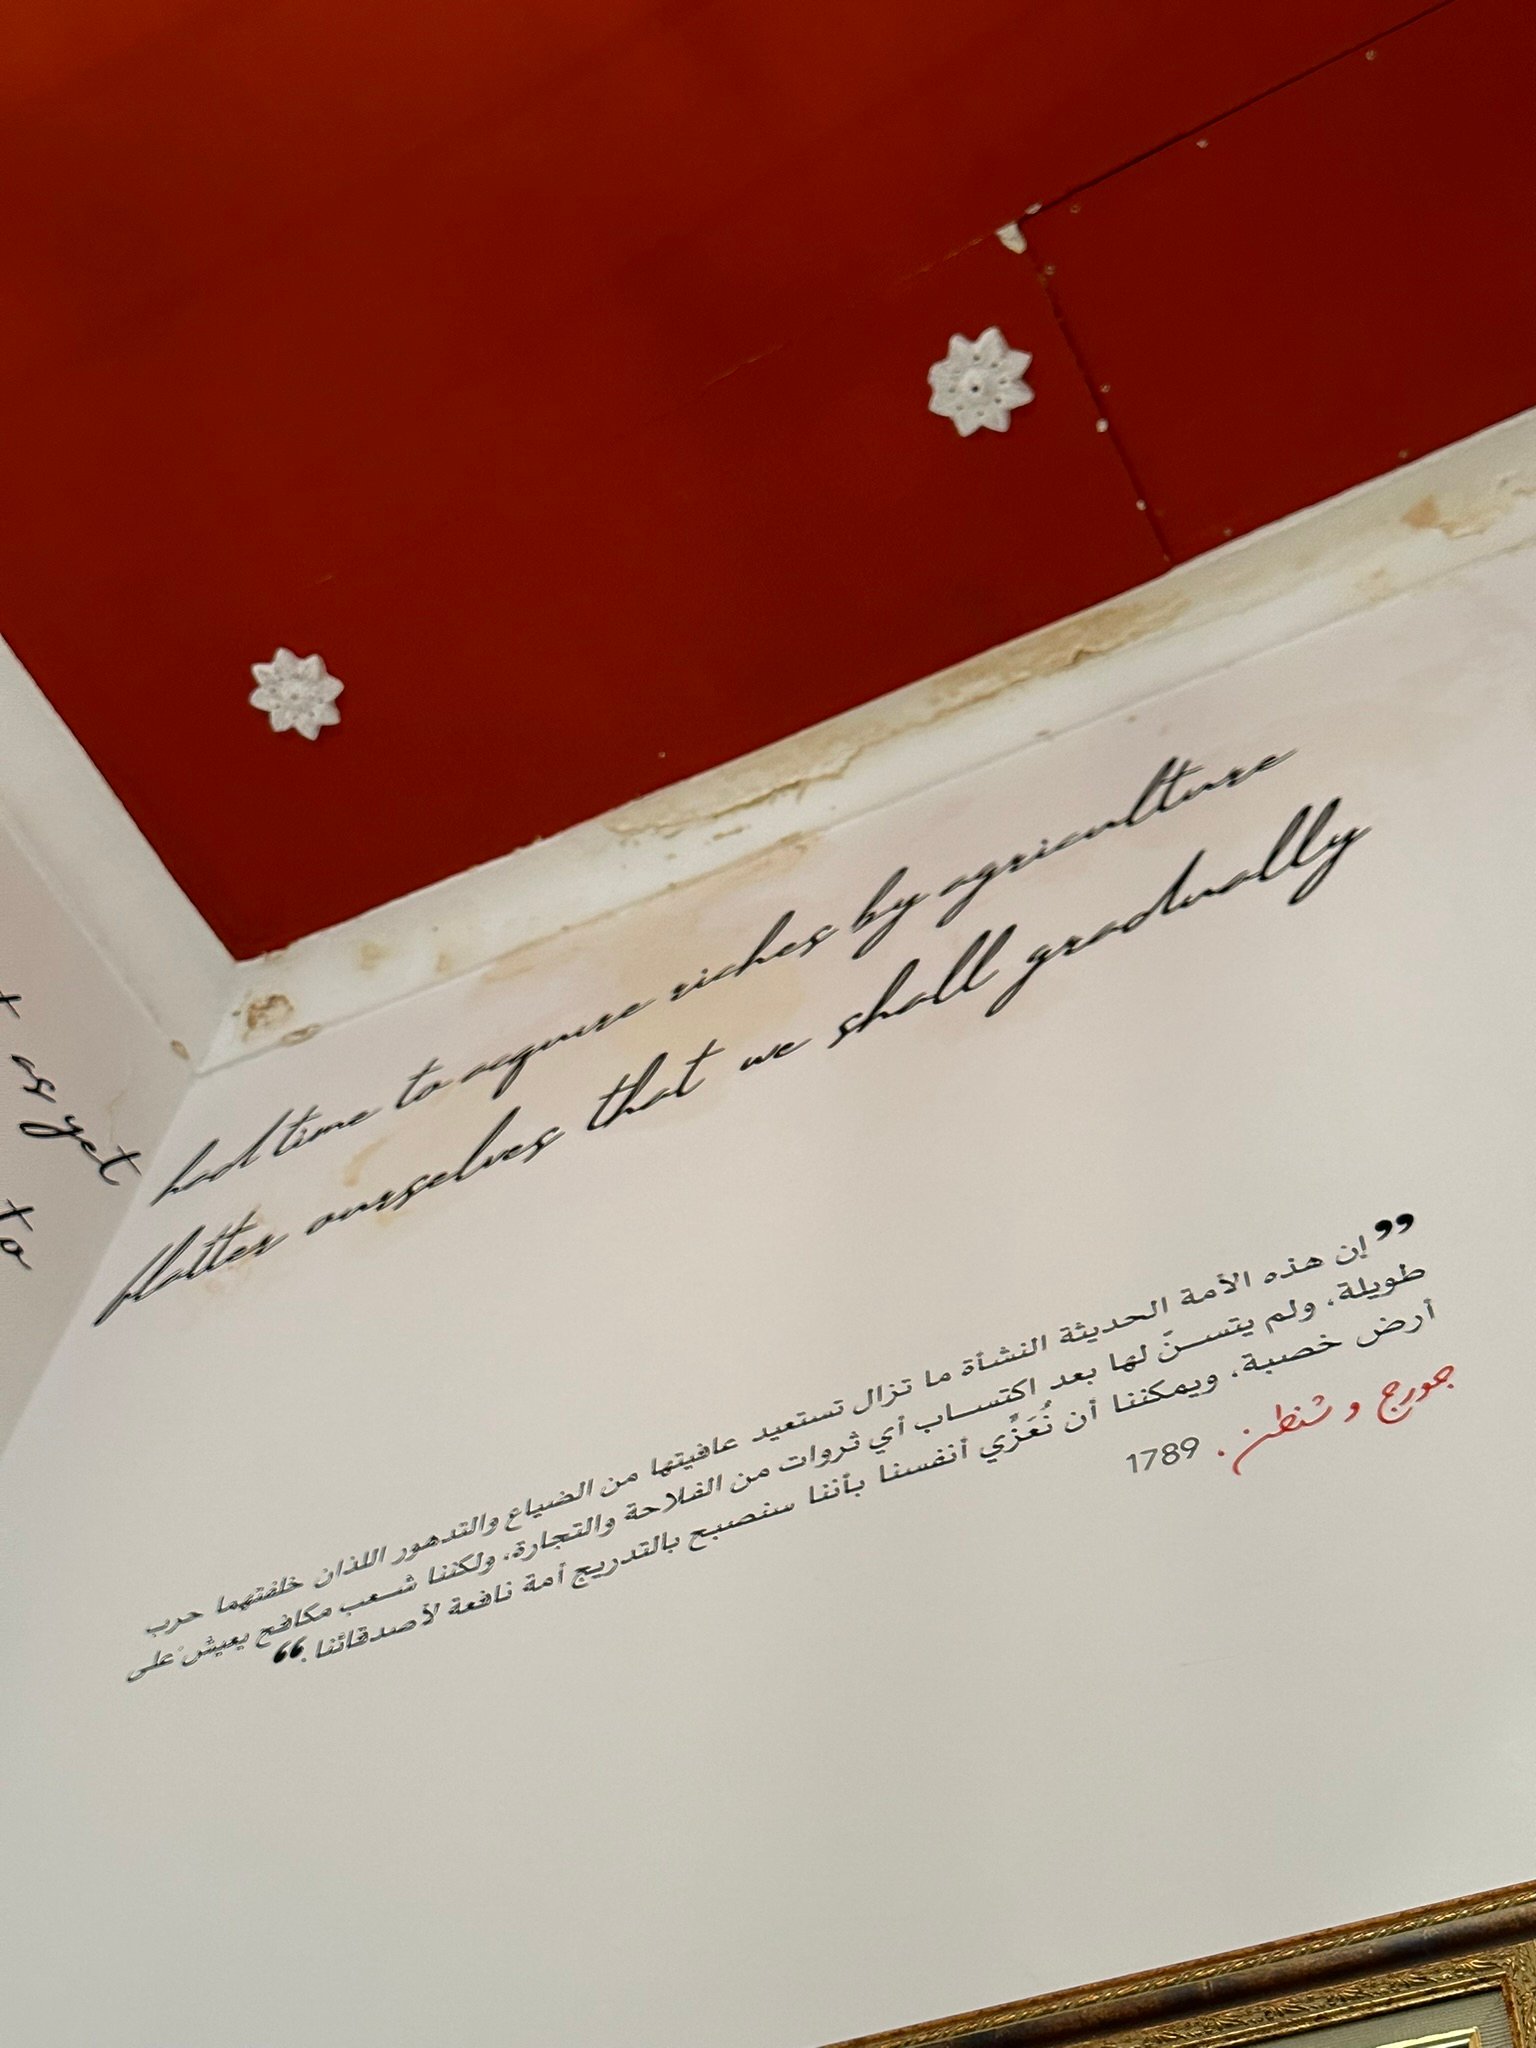 t as yet
to
had time to acquire riches by agriculture
flatter ourselves that we shall gradually
”إن هذه الأمة الحديثة النشأة ما تزال تستعيد عافيتها من الضياع والتدهور اللذان خلفتهما حرب
طويلة، ولم يتسنّ لها بعد اكتساب أي ثروات من الفلاحة والتجارة، ولكننا شعب مكافح يعيش على
أرض خصبة، ويمكننا أن نُعَزِّي أنفسنا بأننا سنصبح بالتدريج أمة نافعة لأصدقائنا.“
جورج وشنطن. 1789